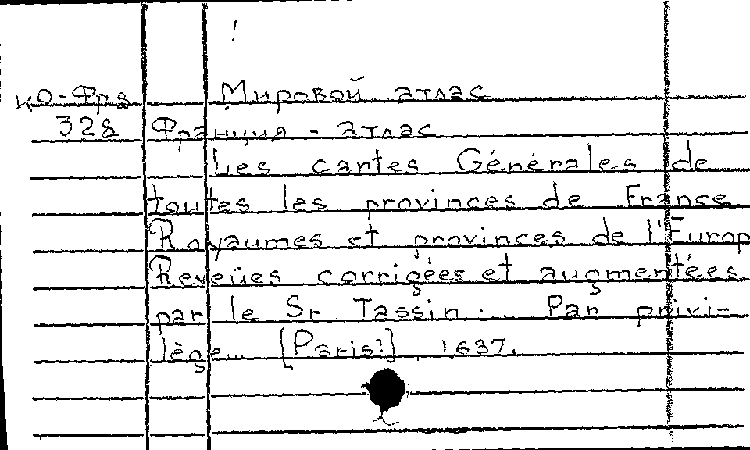 !
Ко-Фра Мировой атлас
328 Франция - атлас
Les cartes Générales de
toutes les provinces de France
Royaumes et provinces de l'Europ
Reveües corrigées et augmentées
par le Sr Tassin... Par privi-
lège... [Paris?] 1637.